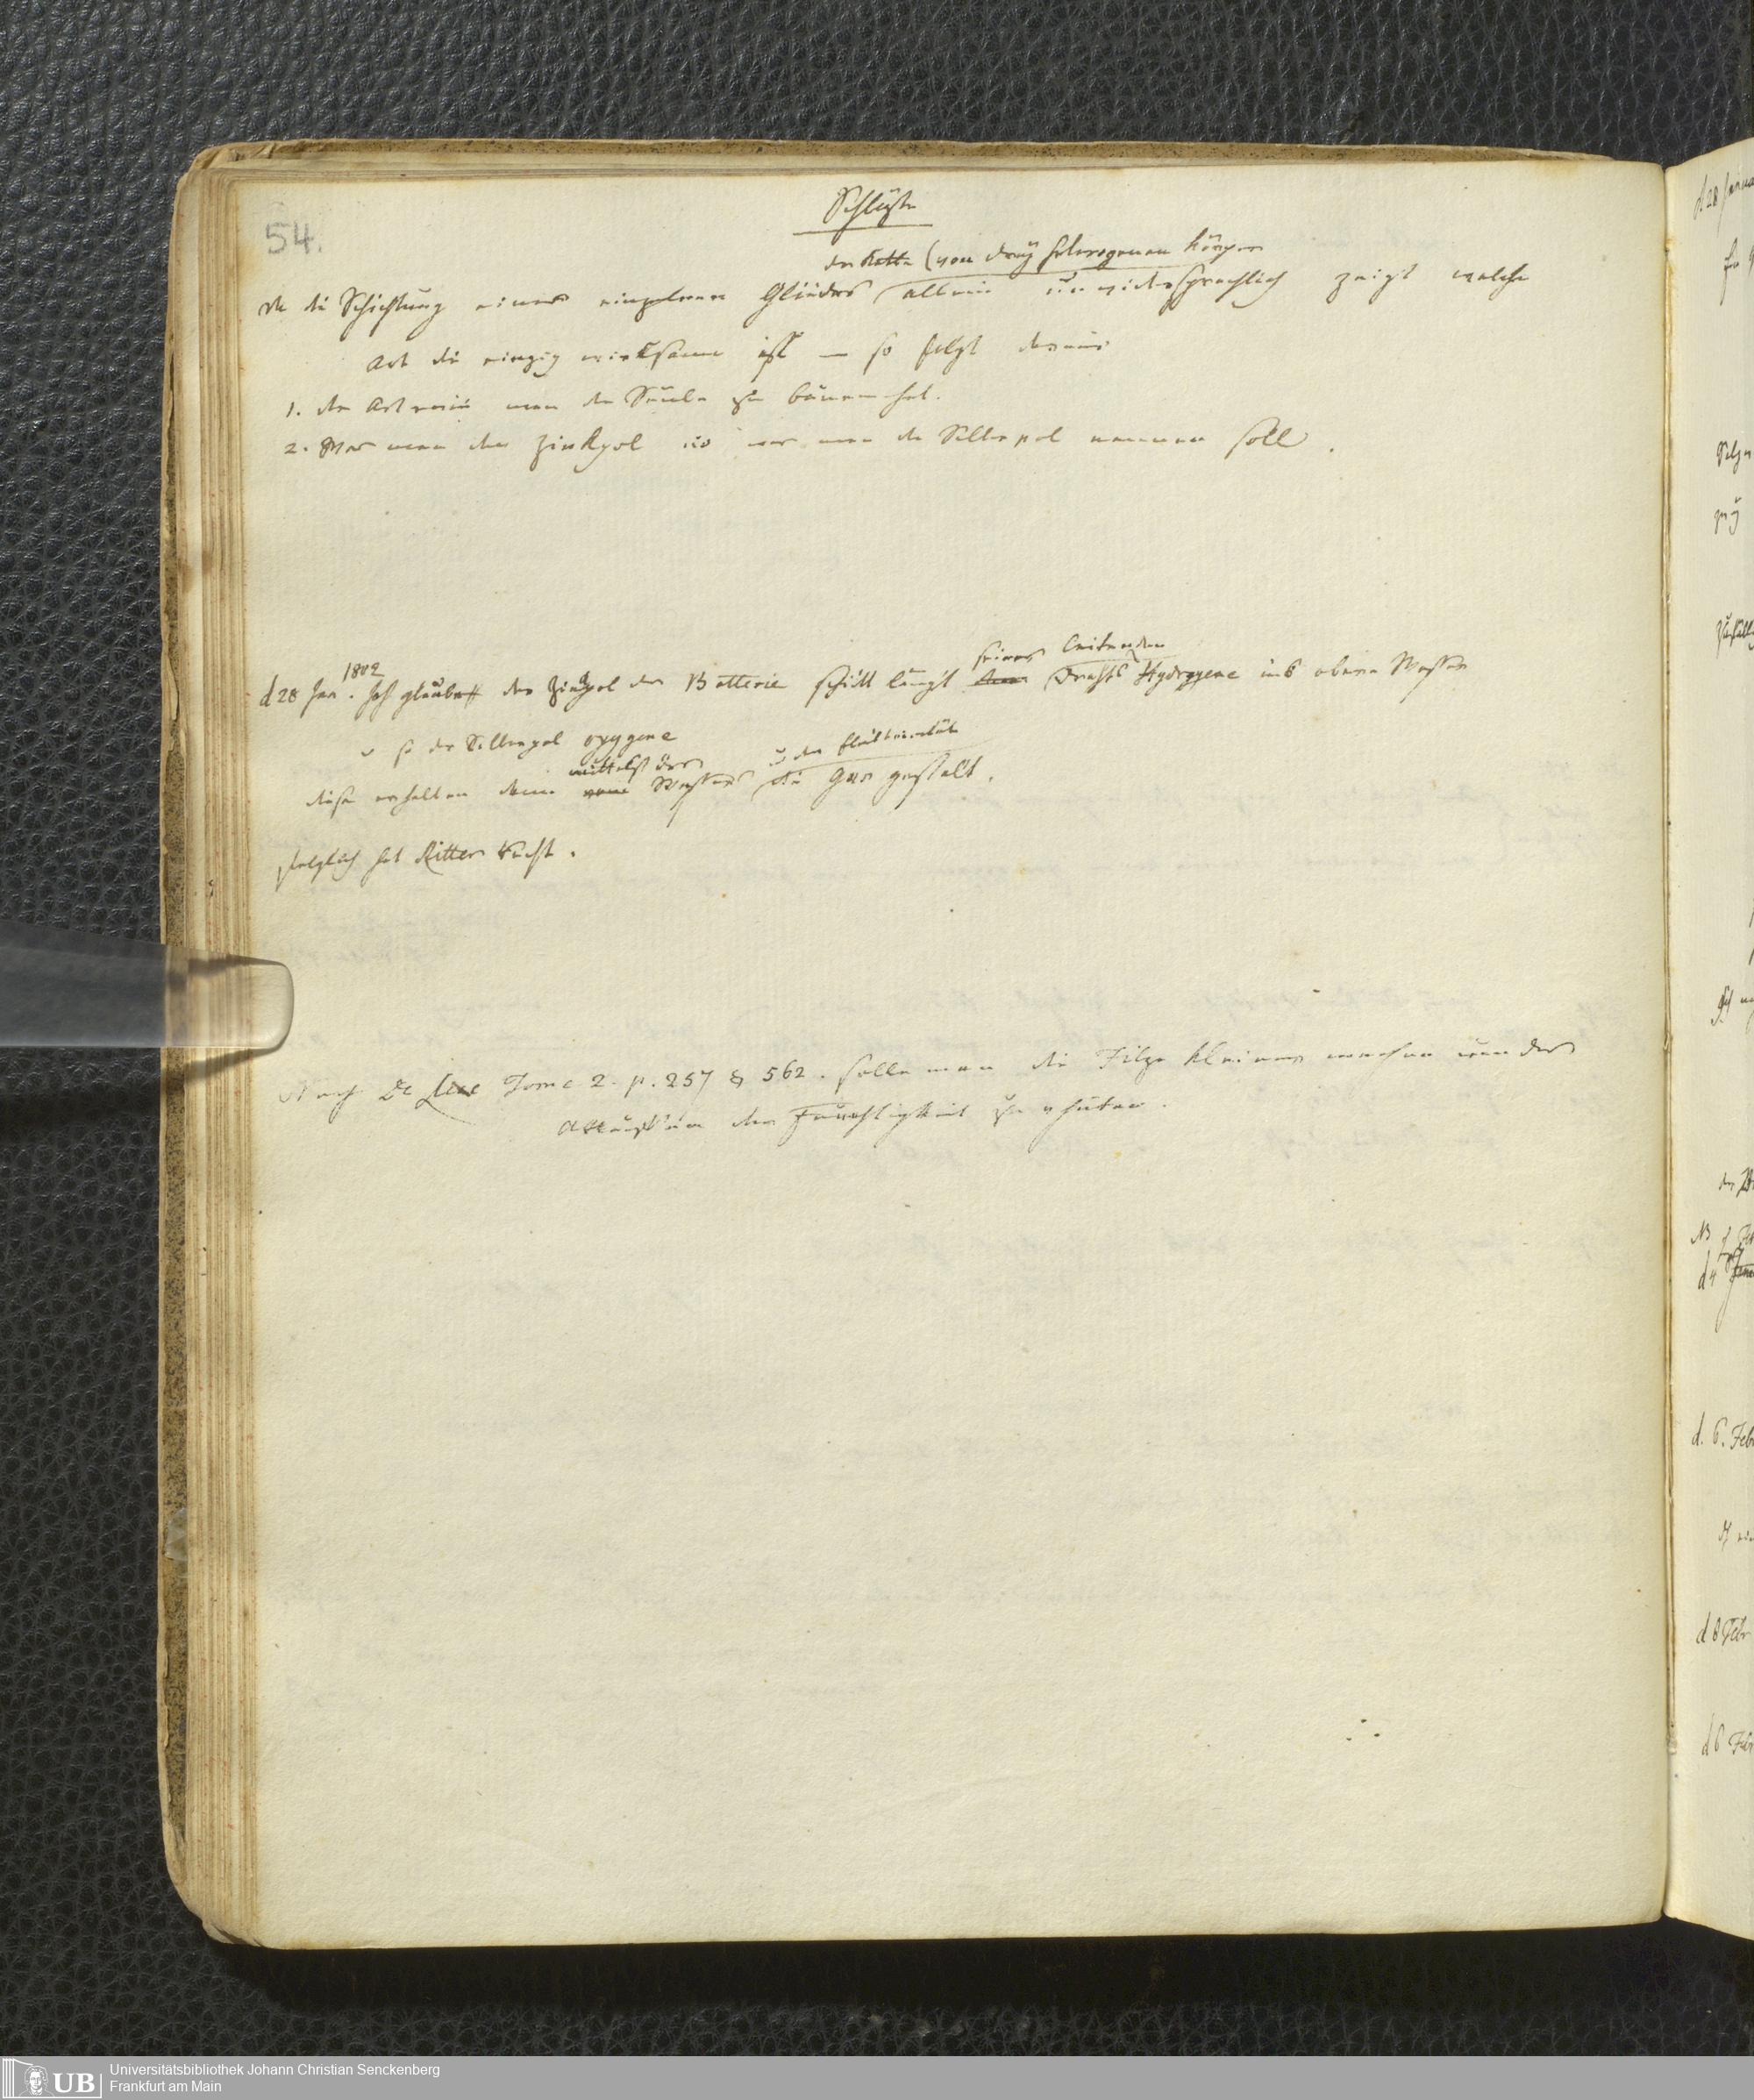 54.
Schlüße
der Kette (von drey heterogenen Körper
Da die Schichtung eines einzelnen Gliedes allein unwidersprechlich zeigt welche
Art die einzig wirksame ist — so folgt daraus
1. die Art wie man die Säule zu bauen hat.
2. Was man den Zinkpol und was man den Silberpol nennen soll.
1802
seines leitenden
d 28 Jan. Ich glaube der Zinkpol der Batterie schikt längst Drahts Hydrogene ins obere Wasser
u so der Silberpol oxygene
mittelst des u der Elektricität
diese erhalten dann Wassers die Gasgestalt.
folglich hat Ritter Recht.
Nach De Luc Tome 2. p. 257 & 562. solle man die Filze kleiner machen um das
der Feuchtigkeit zu verhüten.
d 28 Janua
d. 6. Feb
d 8 Febr
d 6 Feb
UB
Universitätsbibliothek Johann Christian Senckenberg
Frankfurt am Main